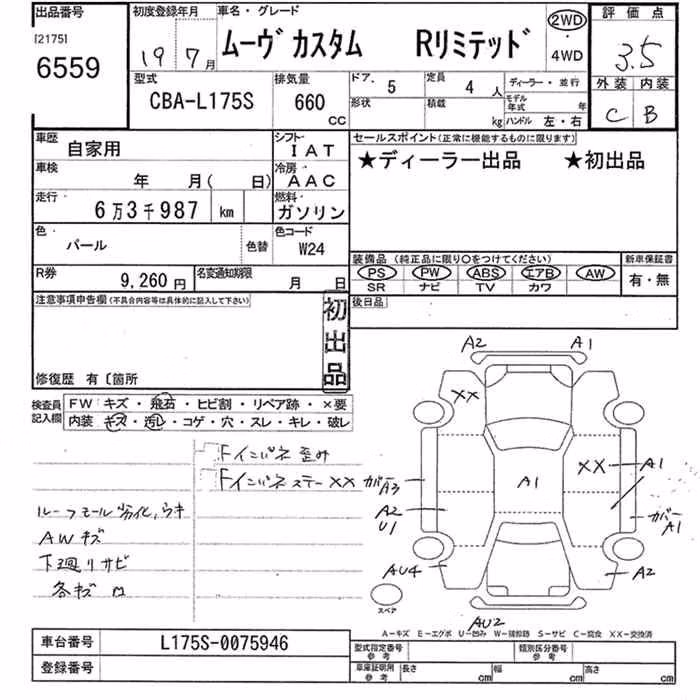 出品番号
[2175]
6559
初度登録年月
19 7月
車名・グレード
ムーヴ カスタム Rリミテッド
2WD
・
4WD
評価点
3.5
外装 内装
C B
型式
CBA-L175S
排気量
660
CC
ドア、
5
定員
4 人
ディーラー・並行
形状
積載
kg
モデル年式
年
ハンドル 左・右
車歴
自家用
シフト
IAT
車検
年 月( 日)
冷房
AAC
走行
6万3千987 km
燃料
ガソリン
色
パール
色替
色コード
W24
R券
9,260円
名変通知期限
月 日
セールスポイント(正常に機能するものに限ります)
★ディーラー出品 ★初出品
装備品 (純正品に限り○をつけてください)
PS PW ABS エアB AW
SR ナビ TV カワ
新車保証書
有・無
後日品
注意事項申告欄(不具合内容等は具体的に記入して下さい)
初出品
修復歴 有〔箇所
検査員記入欄
FW キズ・飛石・ヒビ割・リペア跡・×要
内装 キズ・汚レ・コゲ・穴・スレ・キレ・破レ
Fインパネ 歪み
Fインパネ ステー XX
ルーフモール劣化,ウキ
AWキズ
下廻リサビ
各キズ
A2 A1
XX
XX A1
カバー A3
A1
A2
U1
カバー A1
AU4
A2
スペア
AU2
A-キズ E-エグボ U-凹み W-補修跡 S-サビ C-腐食 XX-交換済
車台番号
L175S-0075946
登録番号
型式指定番号
参考
類別区分番号
参考
車庫証明用
参考
長さ
cm
幅
cm
高さ
cm